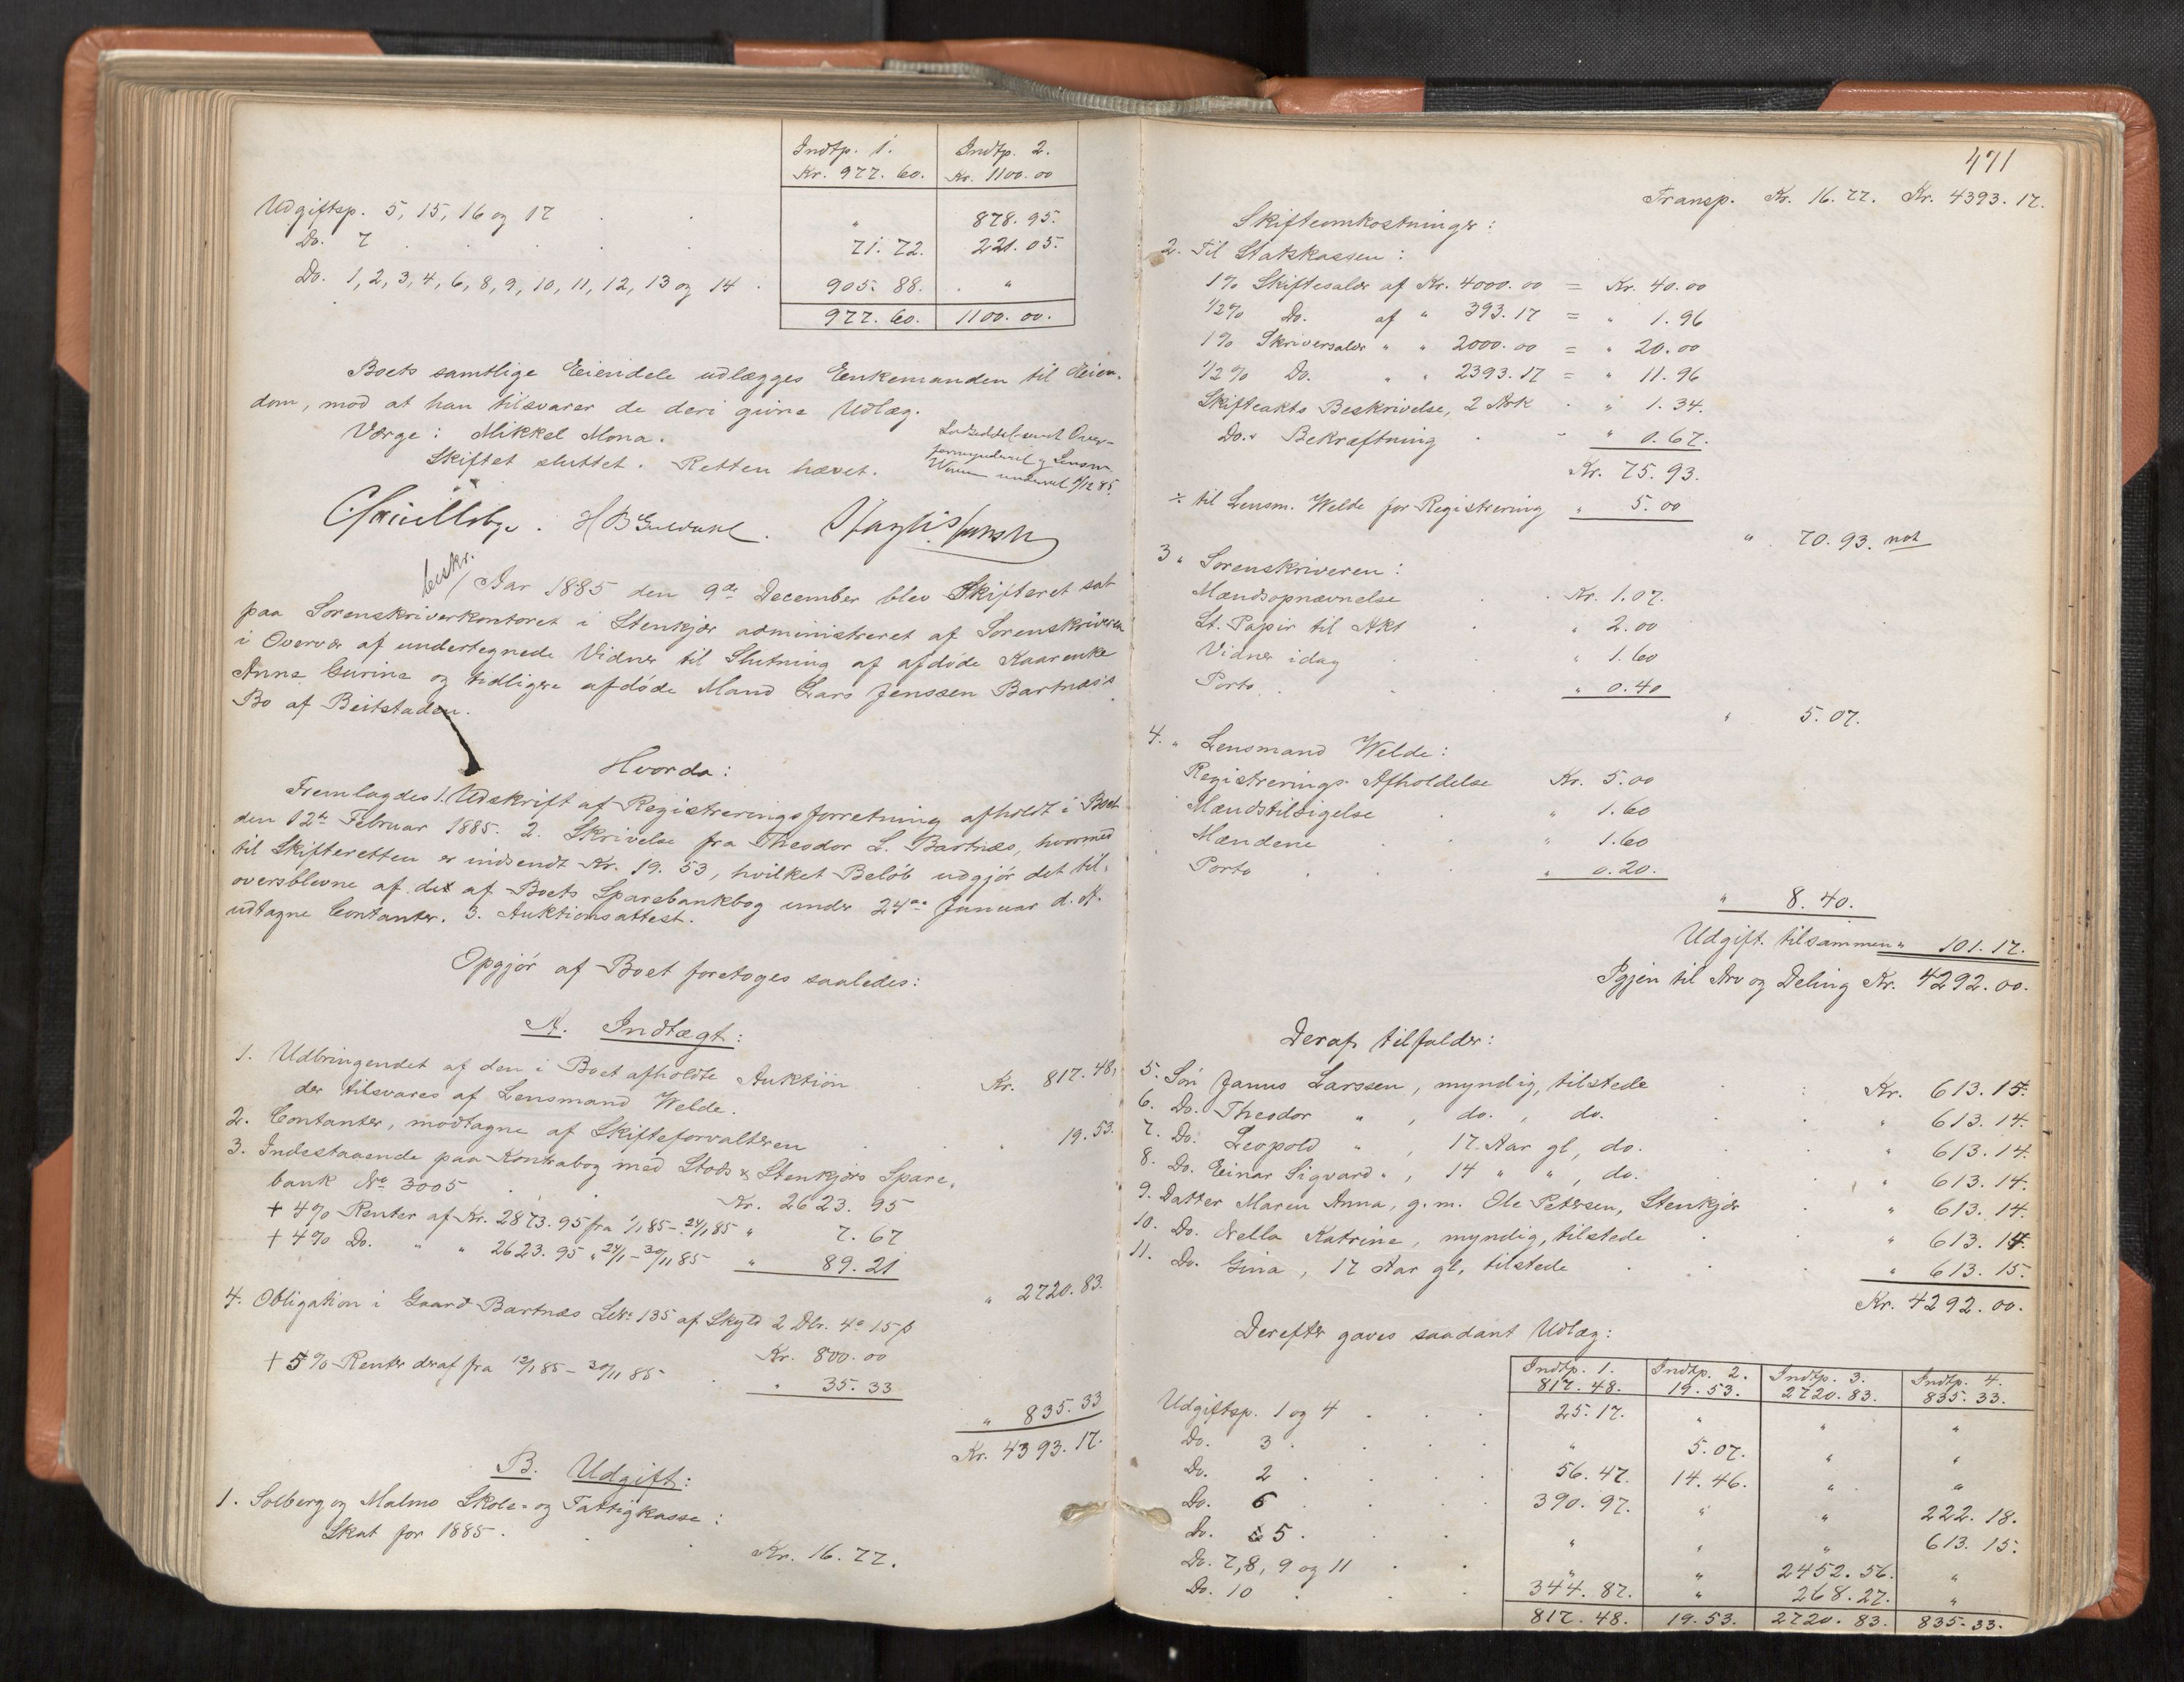 Indtp. 1. Indtp. 2.
Kr. 977. 60. Kr. 1100. 00
Udgiftsp. 5, 15, 16 og 17 . . " 878. 95.
Do. 7 . . . . 71. 72. 221. 05.
Do. 1, 2, 3, 4, 6, 8, 9, 10, 11, 12, 13 og 14 . 905. 88. . "
977. 60. 1100. 00.
Boets samtlige Eiendele udlægges Enkemanden til Eien-
dom, mod at han tilsvarer de deri givne Udlæg.
Værge: Mikkel Mona.
Skiftet sluttet. Retten hævet.
Lodseddel sendt Over-
formynderiet og Lensm.
85.
beskr.
/ Aar 1885 den 9de December blev Skifteret sat
paa Sorenskriverkontoret i Stenkjær administreret af Sorenskriveren
i Overvær af undertegnede Vidner til Slutning af afdøde Kaarenke
Anna Gurine og tidligere afdøde Mand Lars Jenssen Bartnæs's
Bo af Beitstaden.
Hvorda:
Fremlagdes 1. Udskrift af Registreringsforretning afholdt i Boet
den 12te Februar 1885. 2. Skrivelse fra Theodor L. Bartnæs, hvormed
til Skifteretten er indsendt Kr. 19. 53, hvilket Beløb udgjør det til-
oversblevne af det af Boets Sparebankbog under 24de Januar d. A.
udtagne Contanter. 3. Auktionsattest.
Opgjør af Boet foretoges saaledes:
A. Indtægt:
1. Udbringendet af den i Boet afholdte Auktion . Kr. 817. 48,
der tilsvares af Lensmand Welde.
2. Contanter, modtagne af Skifteforvalteren . . 19. 53.
3. Indestaaende paa Kontrabog med Stods & Stenkjærs Spare-
bank No 3005 . Kr. 2623. 95
+ 4% Renter af Kr. 2873. 95 fra 1/1 85 - 24/1 85 " 7. 67
+ 4% Do. " " 2623. 95 " 24/1 - 30/11 85 " 89. 21
" 2720. 83.
4. Obligation i Gaard Bartnæs LNo 135 af Skyld 2 Dlr. 4 o 15 ß
Kr. 800. 00
+ 5% Renter deraf fra 12/1 85 - 30/11 85 . " 35. 33
" 835. 33
Kr. 4393. 17.
B. Udgift:
1. Solberg og Malmo Skole- og Fattigkasse:
Skat for 1885. . . Kr. 16. 77.
471
Transp. Kr. 16. 77. Kr. 4393. 17.
Skifteomkostninger:
2. Til Statskassen:
1% Skiftesalær af Kr. 4000. 00 = Kr. 40. 00
1/2% Do. af " 393. 17 = " 1. 96
1% Skriversalær " " 2000. 00 = " 20. 00
1/2% Do. " " 2393. 17 = " 11. 96
Skifteakts Beskrivelse, 2 Ark . " 1. 34.
Do.s Bekræftning . - " 0. 67.
Kr. 75. 93.
÷ til Lensm. Welde for Registrering " 5. 00
" 70. 93. not
3 " Sorenskriveren:
Mændsopnævnelse . . Kr. 1. 07.
St. Papir til Akt . " 2. 00
Vidner idag . " 1. 60
Porto . . . " 0. 40
" 5. 07.
4. " Lensmand Welde:
Registrerings Afholdelse Kr. 5. 00
Mændstilsigelse . " 1. 60
Mændene . . " 1. 60
Porto . . . " 0. 20.
" 8. 40.
Udgift tilsammen " 101. 17.
Igjen til Arv og Deling Kr. 4292. 00.
Deraf tilfalder:
5. Søn Janus Larssen, myndig, tilstede . Kr. 613. 15.
6. Do. Theodor " , do. , do. . . " 613. 14.
7. Do. Leopold " , 17 Aar gl, do. . . " 613. 14.
8. Do. Einar Sigvard " , 14 " " , do. . " 613. 14.
9. Datter Maren Anna, g. m. Ole Petersen, Stenkjær . " 613. 14.
10. Do. Nella Katrine, myndig, tilstede . . " 613. 14.
11. Do. Gina, 17 Aar gl, tilstede . . . " 613. 15.
Kr. 4292. 00.
Derefter gaves saadant Udlæg:
Indtp. 1. Indtp. 2. Indtp. 3. Indtp. 4.
817. 48. 19. 53. 2720. 83. 835. 33.
Udgiftsp. 1 og 4 . . . 25. 17. " " "
Do. 3 . . . . " 5. 07. " "
Do. 2 . . . . 56. 47. 14. 46. " "
Do. 6 . . . . 390. 97. " " 222. 18.
Do. 5 . . . . " " " 613. 15.
Do. 7, 8, 9 og 11 . . " " 2452. 56. "
Do. 10 . . . 344. 87. " 268. 27. "
817. 48. 19. 53. 2720. 83. 835. 33.